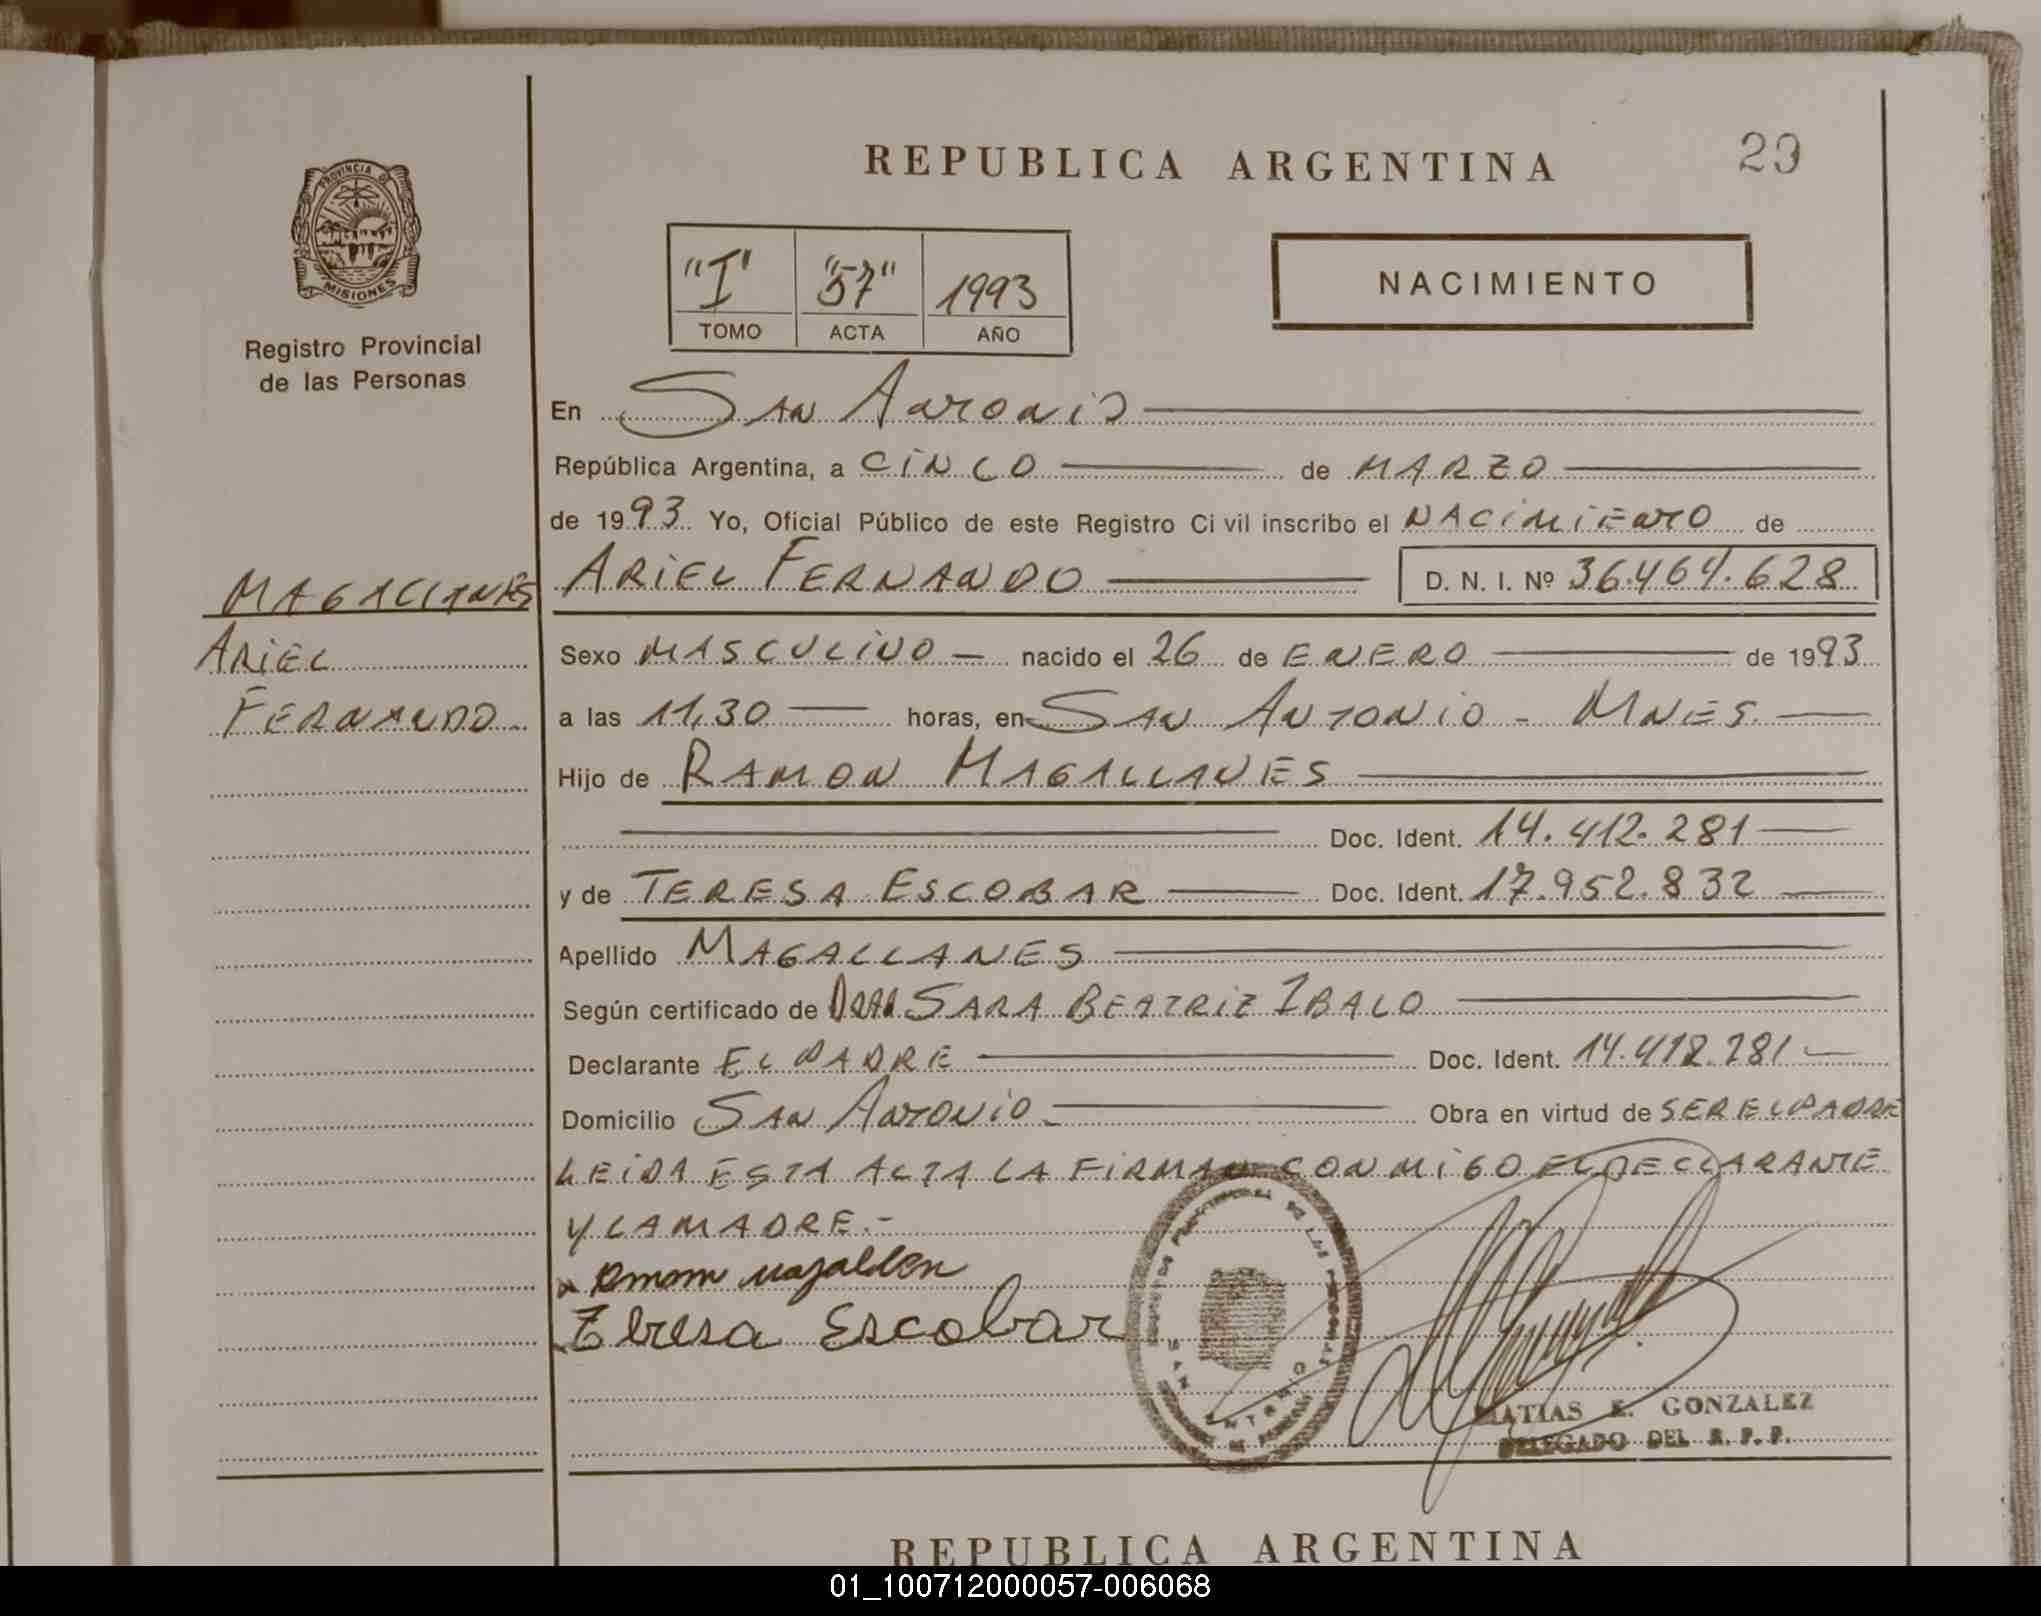 REPUBLICA ARGENTINA
29
PROVINCIA DE
MISIONES
Registro Provincial
de las Personas
"I" "57" 1993
TOMO ACTA AÑO
NACIMIENTO
En San Antonio
República Argentina, a CINCO de MARZO
de 1993 Yo, Oficial Público de este Registro Civil inscribo el NACIMIENTO de
ARIEL FERNANDO D. N. I. Nº 36.464.628
MAGALLANES
ARIEL
FERNANDO
Sexo MASCULINO nacido el 26 de ENERO de 1993
a las 11,30 horas, en SAN ANTONIO - MNES.
Hijo de RAMON MAGALLANES
Doc. Ident. 14.412.281
y de TERESA ESCOBAR Doc. Ident. 17.952.832
Apellido MAGALLANES
Según certificado de DRA SARA BEATRIZ IBALO
Declarante EL PADRE Doc. Ident. 14.412.281
Domicilio SAN ANTONIO Obra en virtud de SER EL PADRE
LEIDA ESTA ACTA LA FIRMAN CONMIGO EL DECLARANTE
Y LA MADRE.-
Teresa Escobar
SAN ANTONIO
MATIAS E. GONZALEZ
DELEGADO DEL R. P. P.
REPUBLICA ARGENTINA
01_100712000057-006068